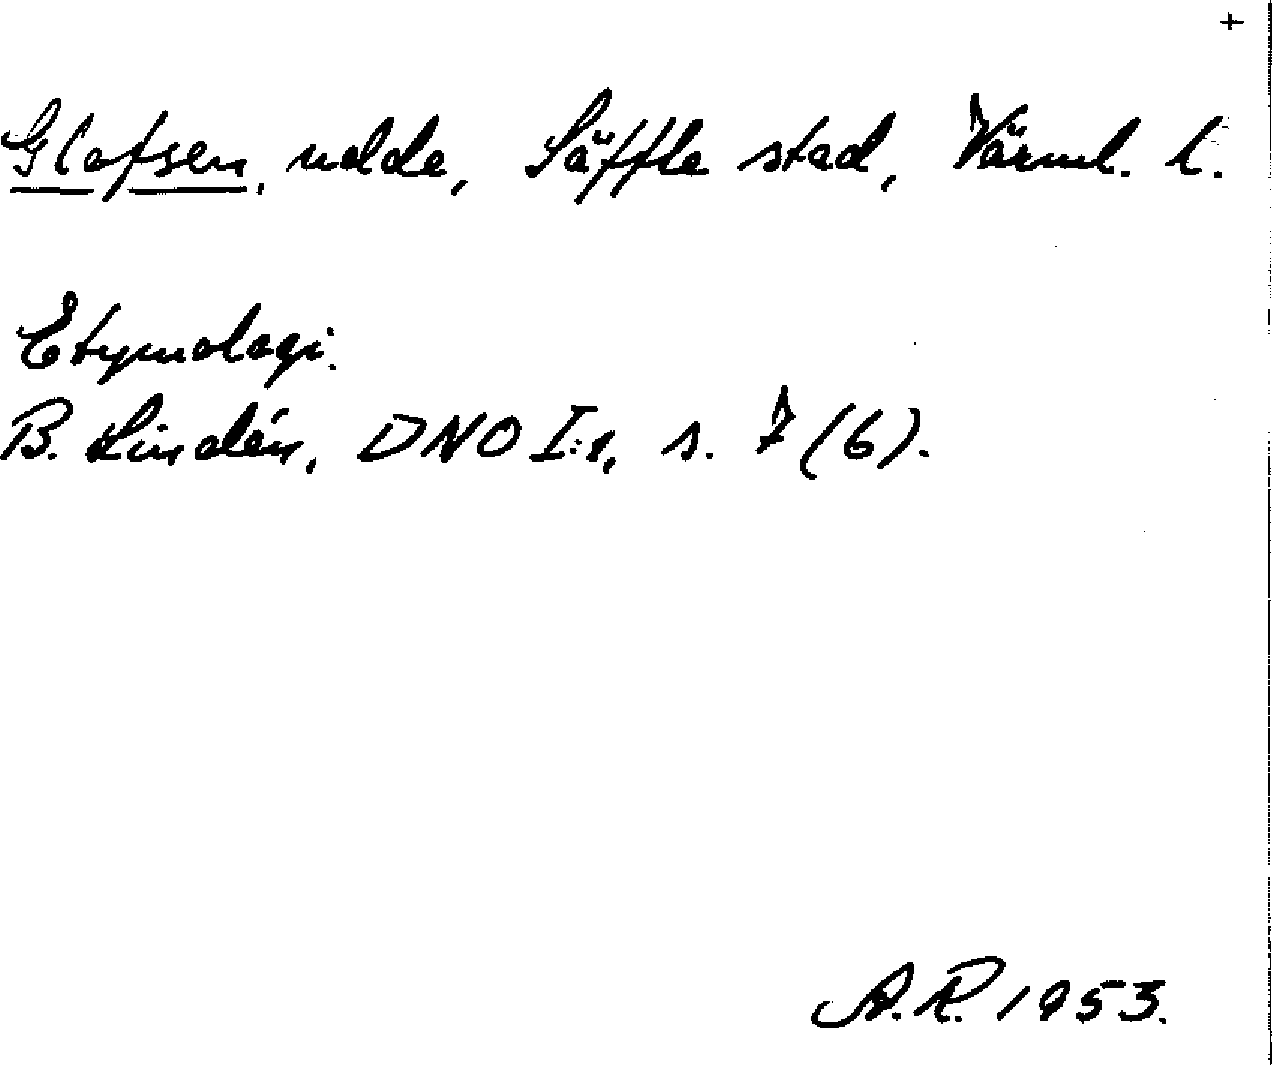 +
Glafsen, udde, Säffle stad, Värml. l.
Etymologi.
B. Lindén, DNO I:1, s. 7 (6).
A.R. 1953.